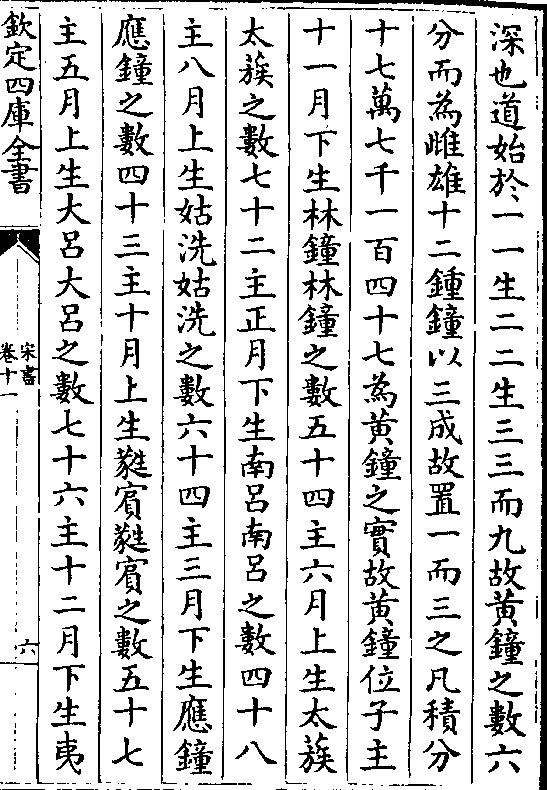 深也道始於一一生二二生三三而九故黃鐘之數六
分而為雌雄十二鍾鐘以三成故置一而三之凡積分
十七萬七千一百四十七為黃鐘之實故黃鐘位子主
十一月下生林鐘林鐘之數五十四主六月上生太蔟
太蔟之數七十二主正月下生南呂南呂之數四十八
主八月上生姑洗姑洗之數六十四主三月下生應鐘
應鐘之數四十三主十月上生蕤賓蕤賓之數五十七
主五月上生大呂大呂之數七十六主十二月下生夷
欽定四庫全書
宋書
卷十一
六